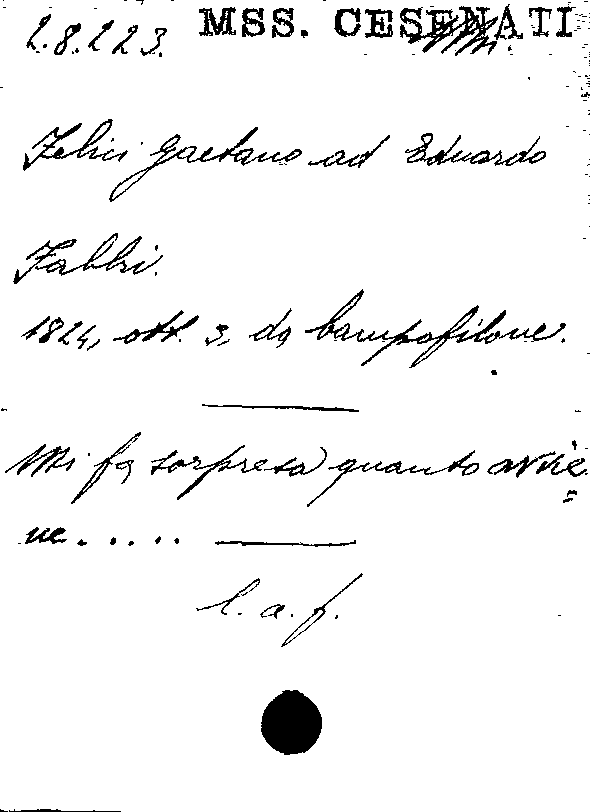 2.8.223. MSS. CESENATI
Felici Gaetano ad Eduardo
Fabbri.
1824, ott. 3, da Campofilone.
Mi fa sorpresa quanto avvie=
ne.....
l. a. f.